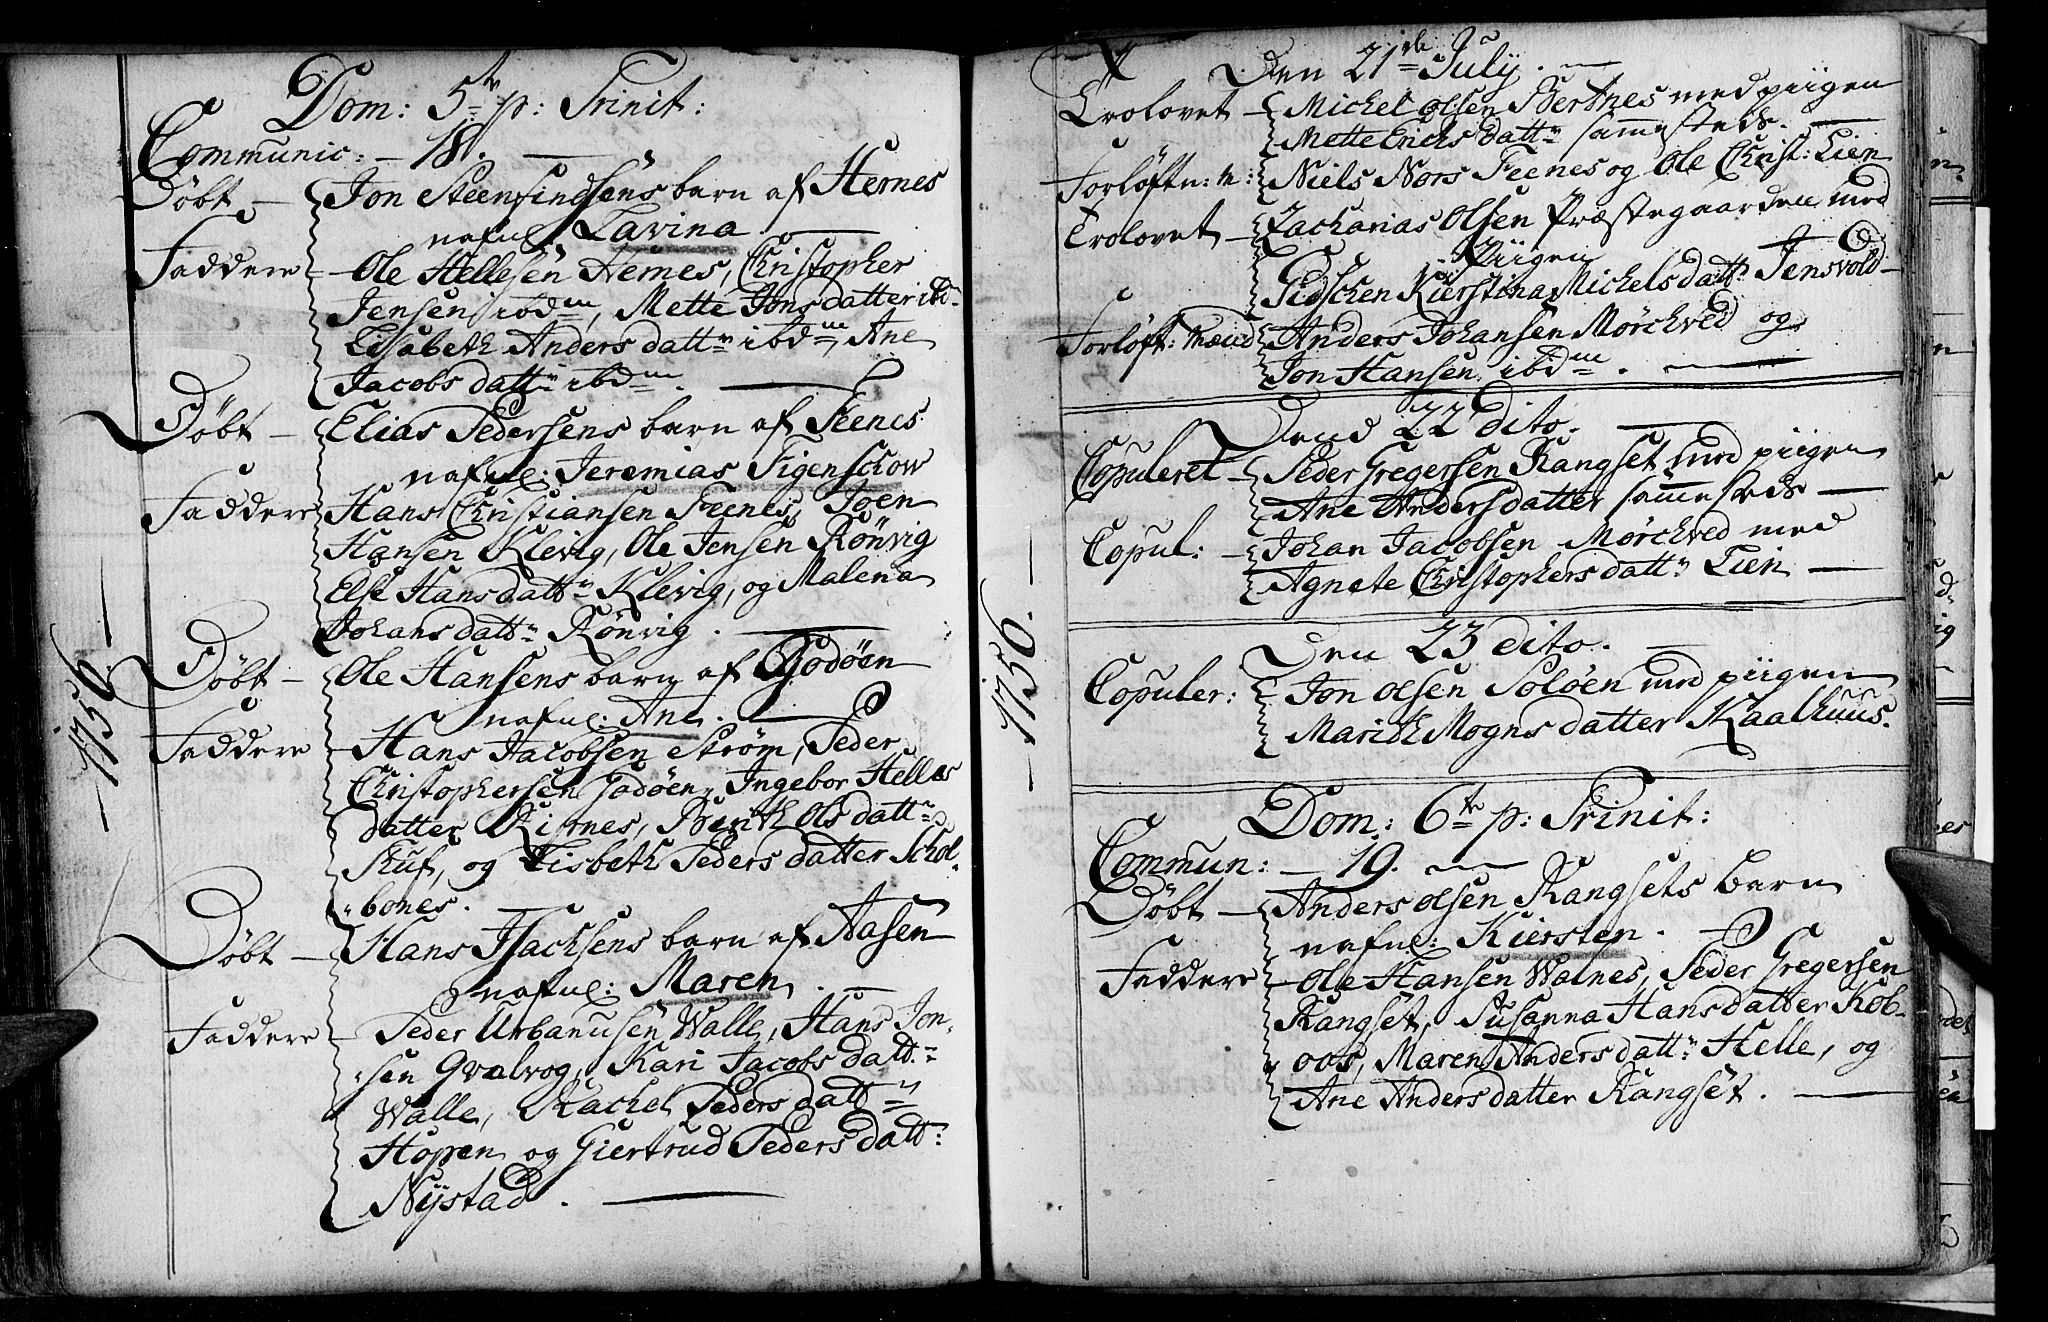 Dom: 5te p: Trinit:
Communic: – 18. –
Døbt – Jon Steenfindsens barn af Hernes
nafnl: Lavina
Faddere – Ole Hellesen Hernes, Christopher
Jensen ibdm, Mette Jonsdatter ibd.
Lisabeth Andersdattr ibdm, Ane
Jacobsdattr ibdm.
Døbt – Elias Pedersens barn af Feenes
nafnl: Jeremias Sigenschow
Faddere Hans Christiansen Feenes, Joen
Hansen Klevig, Ole Jensen Rönvig
Else Hansdattr Klevig, og Malena
Johansdattr Rönvig.
Døbt – Ole Hansens barn af Godøen
nafnl: Ane.
Faddere – Hans Jacobsen Strøm, Peder
Christophersen Godøen, Ingebor Helles
datter Kirnes, Berith Olsdattr
Skuf, og Lisbeth Pedersdatter Schol-
bones.
Døbt – Hans Isachsens barn af Aasen
nafnl: Maren.
Faddere – Peder Urbanusen Walle, Hans Jon-
sen Qvalvog, Kari Jacobsdattr
Walle, Rachel Pedersdattr
Hopen og Giertrud Pedersdatt:
Nÿstad.
– 1756. –
Den 21de Julÿ. –
Trolovet – Michel Olsen Bertnes med piigen
Mette Erichsdattr sammesteds.
Forløftn: m: Niels Nors Feenes og Ole Christ: Lien
Trolovet – Zacharias Olsen Præstegaarden med
Piigen
Sidschen Kierstina Michelsdattr Jensvold
Forløft: Mænd Anders Johansen Mørchved og
Jon Hansen ibdm.
Dend 22 dito.
Copuleret – Peder Gregersen Rangset med piigen
Ane Andersdatter sammesteds –
Copul: – Johan Jacobsen Mørchved med
Agnete Christophersdattr Lien –
Den 23 dito.
Copuler: Jon Olsen Soløen med piigen
Marith Mognsdatter Kaalhuus.
Dom: 6te p: Trinit:
Commun: – 19. –
Døbt – Anders Olsen Rangsets barn
nafnl: Kiersten.
Faddere – Ole Hansen Walnes, Peder Gregersen
Rangset, Susanna Hansdatter Kob-
oos, Maren Andersdattr Helle, og
Ane Andersdatter Rangset. –
– 1756. –